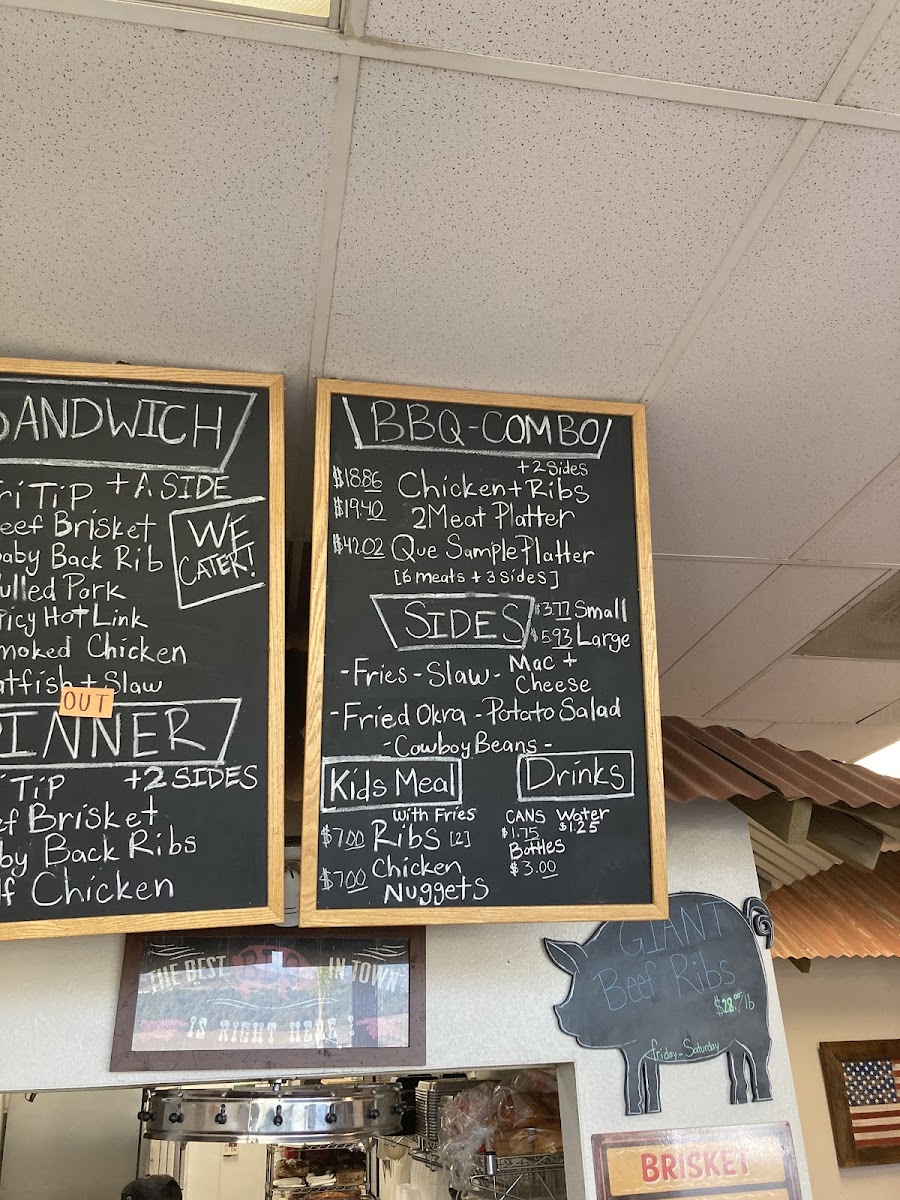 SANDWICH
+ A SIDE
Tri Tip
Beef Brisket
Baby Back Rib
Pulled Pork
Spicy Hot Link
Smoked Chicken
Catfish + Slaw
WE
CATER!
OUT
DINNER
Tip +2 SIDES
Brisket
Back Ribs
Chicken
BBQ-COMBO
+2 Sides
$18.86 Chicken + Ribs
$19.40 2 Meat Platter
$42.02 Que Sample Platter
[6 meats + 3 sides]
SIDES
$3.77 Small
$5.93 Large
-Fries - Slaw - Mac +
Cheese
-Fried Okra - Potato Salad
-Cowboy Beans-
Kids Meal
with Fries
$7.00 Ribs [2]
$7.00 Chicken
Nuggets
Drinks
CANS Water
$1.75 $1.25
Bottles
$3.00
THE BEST BBQ IN TOWN
IS RIGHT HERE!
GIANT
Beef Ribs
$28.00/lb
friday-Saturday
BRISKET